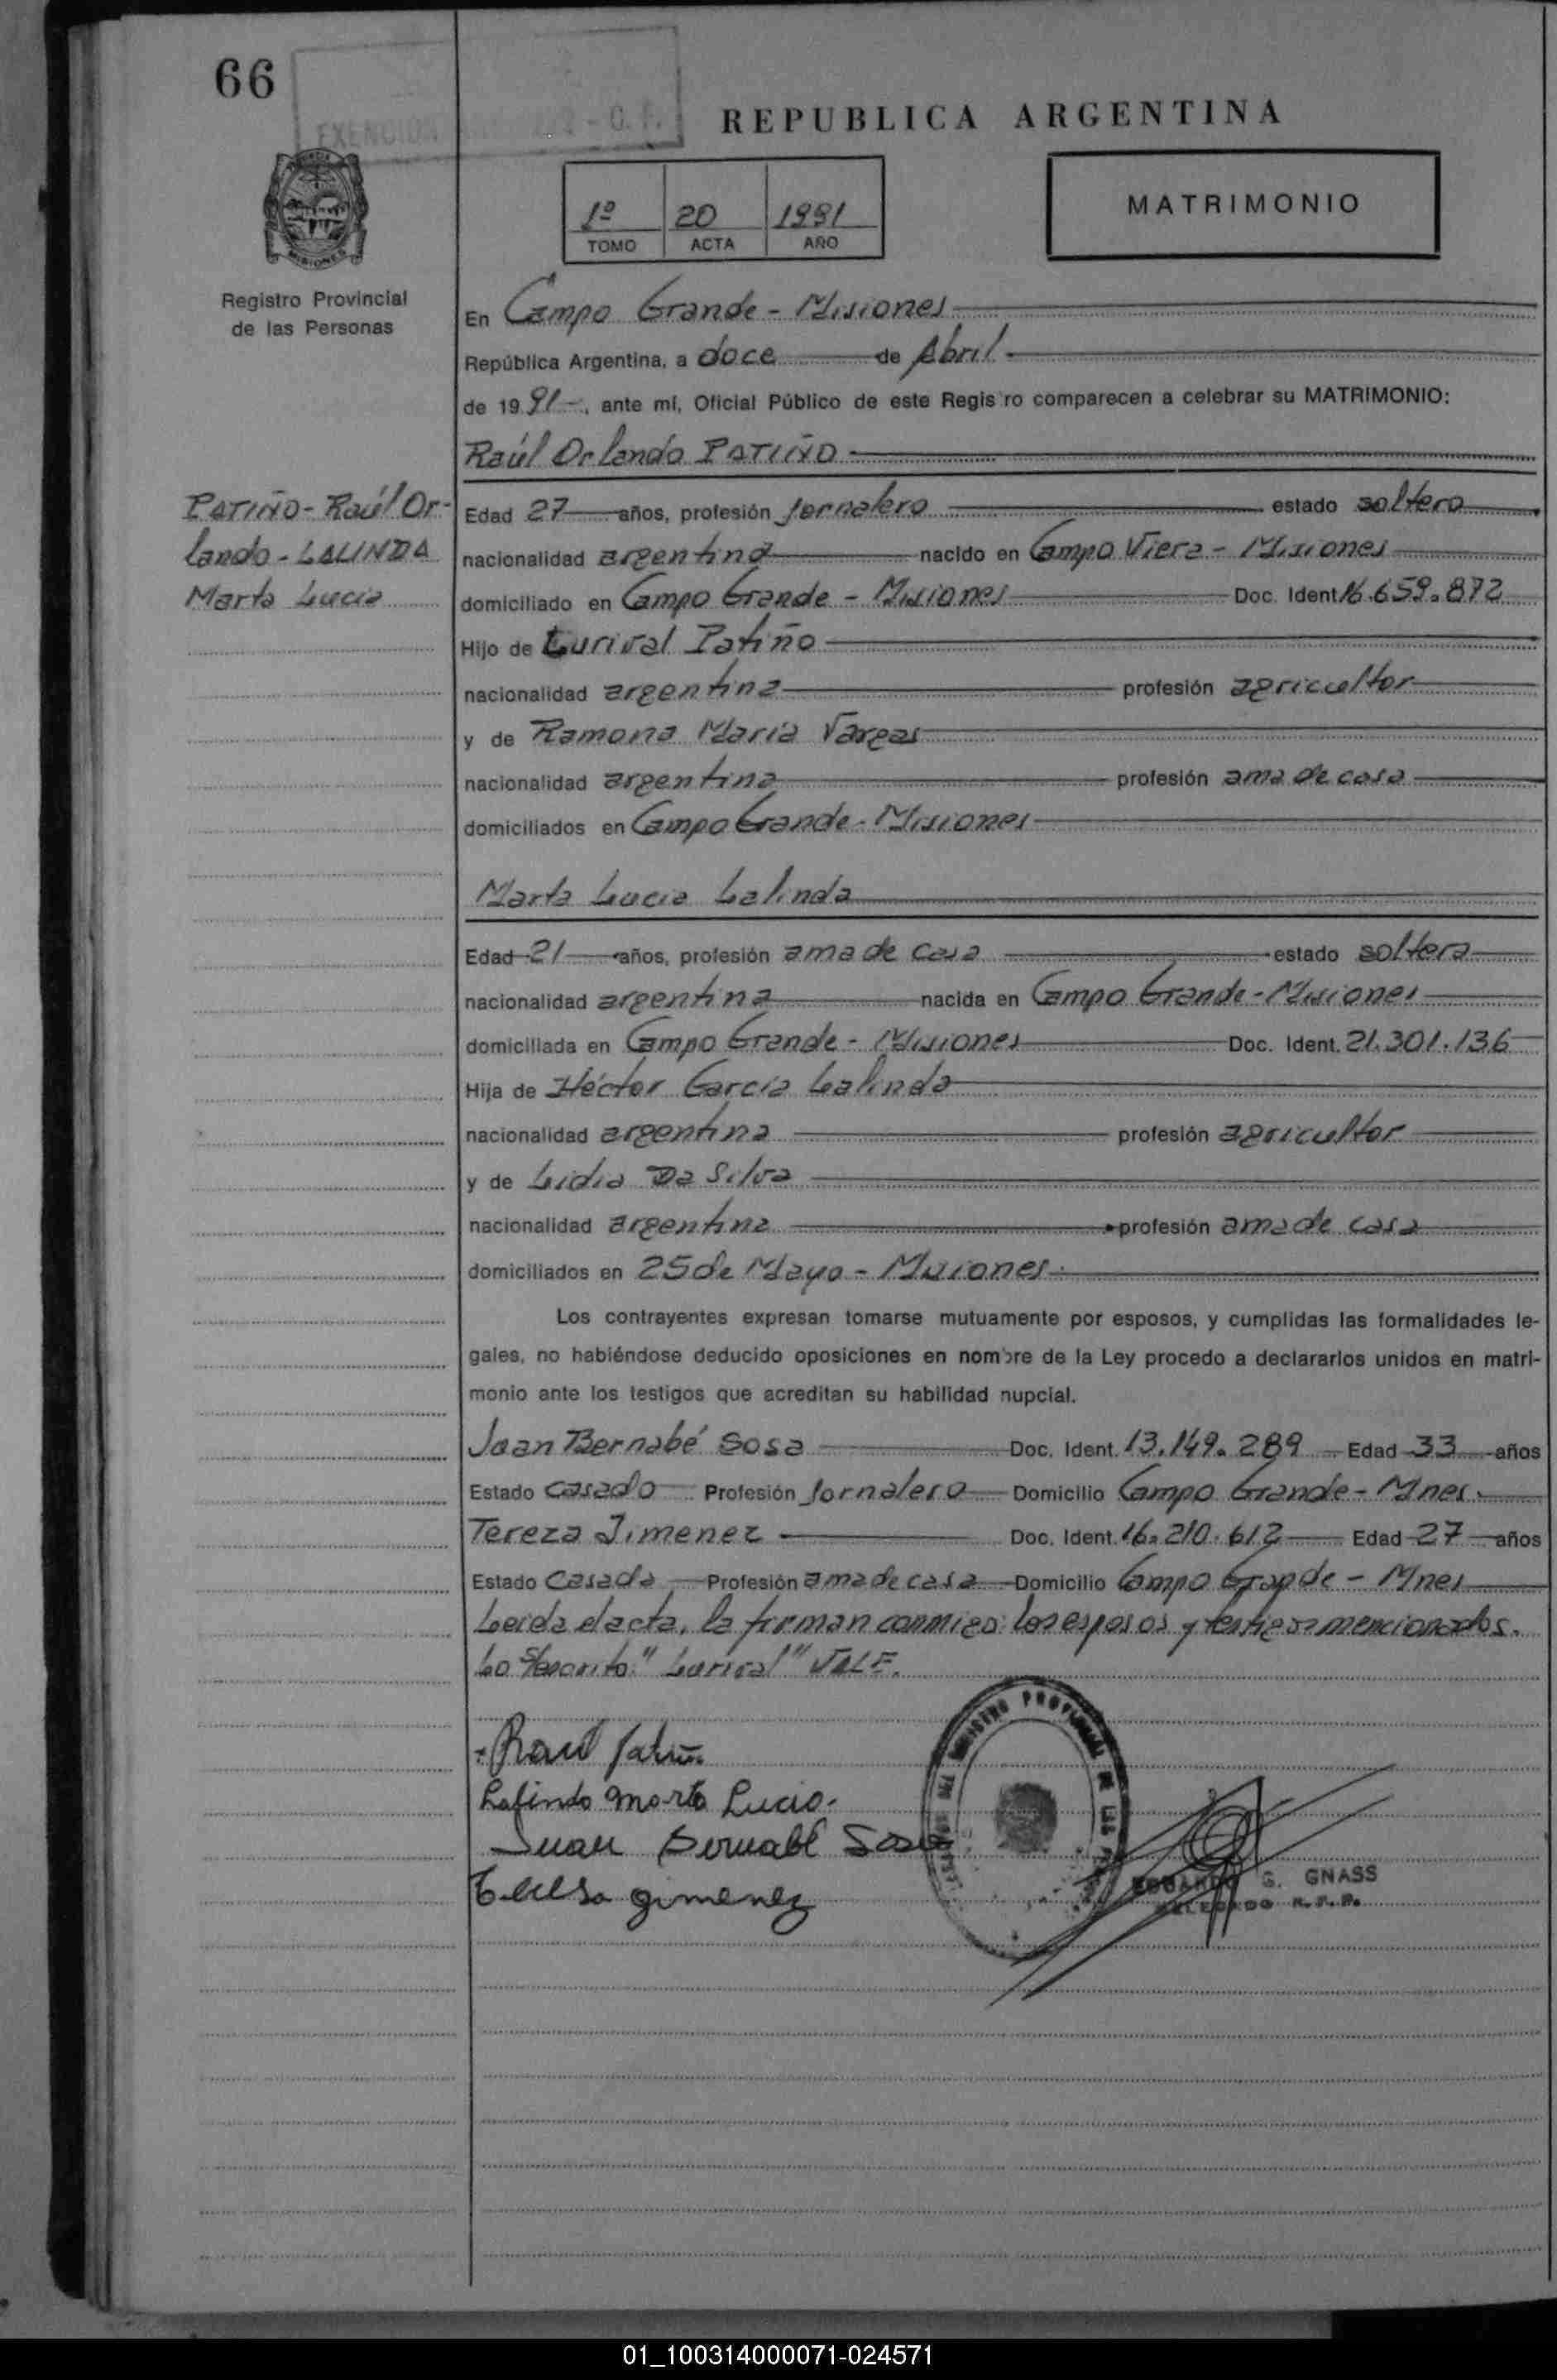 66
EXENCION
REPUBLICA ARGENTINA
1º 20 1991
TOMO ACTA AÑO
MATRIMONIO
MISIONES
Registro Provincial
de las Personas
En Campo Grande - Misiones
República Argentina, a doce de Abril
de 1991-, ante mí, Oficial Público de este Regis ro comparecen a celebrar su MATRIMONIO:
Raúl Orlando PATIÑO
PATIÑO - Raúl Or-
lando - LALINDA
Marta Lucia
Edad 27 años, profesión Jornalero estado soltero
nacionalidad argentina nacido en Campo Viera - Misiones
domiciliado en Campo Grande - Misiones Doc. Ident 16.659.872
Hijo de Lurival Patiño
nacionalidad argentina profesión agricultor
y de Ramona María Vargas
nacionalidad argentina profesión ama de casa
domiciliados en Campo Grande - Misiones
Marta Lucia Lalinda
Edad 21 años, profesión ama de casa estado soltera
nacionalidad argentina nacida en Campo Grande - Misiones
domiciliada en Campo Grande - Misiones Doc. Ident. 21.301.136
Hija de Héctor García Lalinda
nacionalidad argentina profesión agricultor
y de Lidia Da Silva
nacionalidad argentina profesión ama de casa
domiciliados en 25 de Mayo - Misiones.
Los contrayentes expresan tomarse mutuamente por esposos, y cumplidas las formalidades le-
gales, no habiéndose deducido oposiciones en nombre de la Ley procedo a declararlos unidos en matri-
monio ante los testigos que acreditan su habilidad nupcial.
Juan Bernabé Sosa Doc. Ident. 13.149.289 Edad 33 años
Estado casado Profesión Jornalero Domicilio Campo Grande - Mnes.
Tereza Jimenez Doc. Ident. 16.210.612 Edad 27 años
Estado Casada Profesión ama de casa Domicilio Campo Grande - Mnes
Leída el acta, la firman conmigo los esposos y testigos mencionados.
Lo S/escrito "Lurival" VALE.
Raul Patiño
Lalinda Marta Lucia.
Juan Bernabé Sosa
Teresa Gimenez
EDUARDO G. GNASS
DELEGADO R.P.P.
01_100314000071-024571